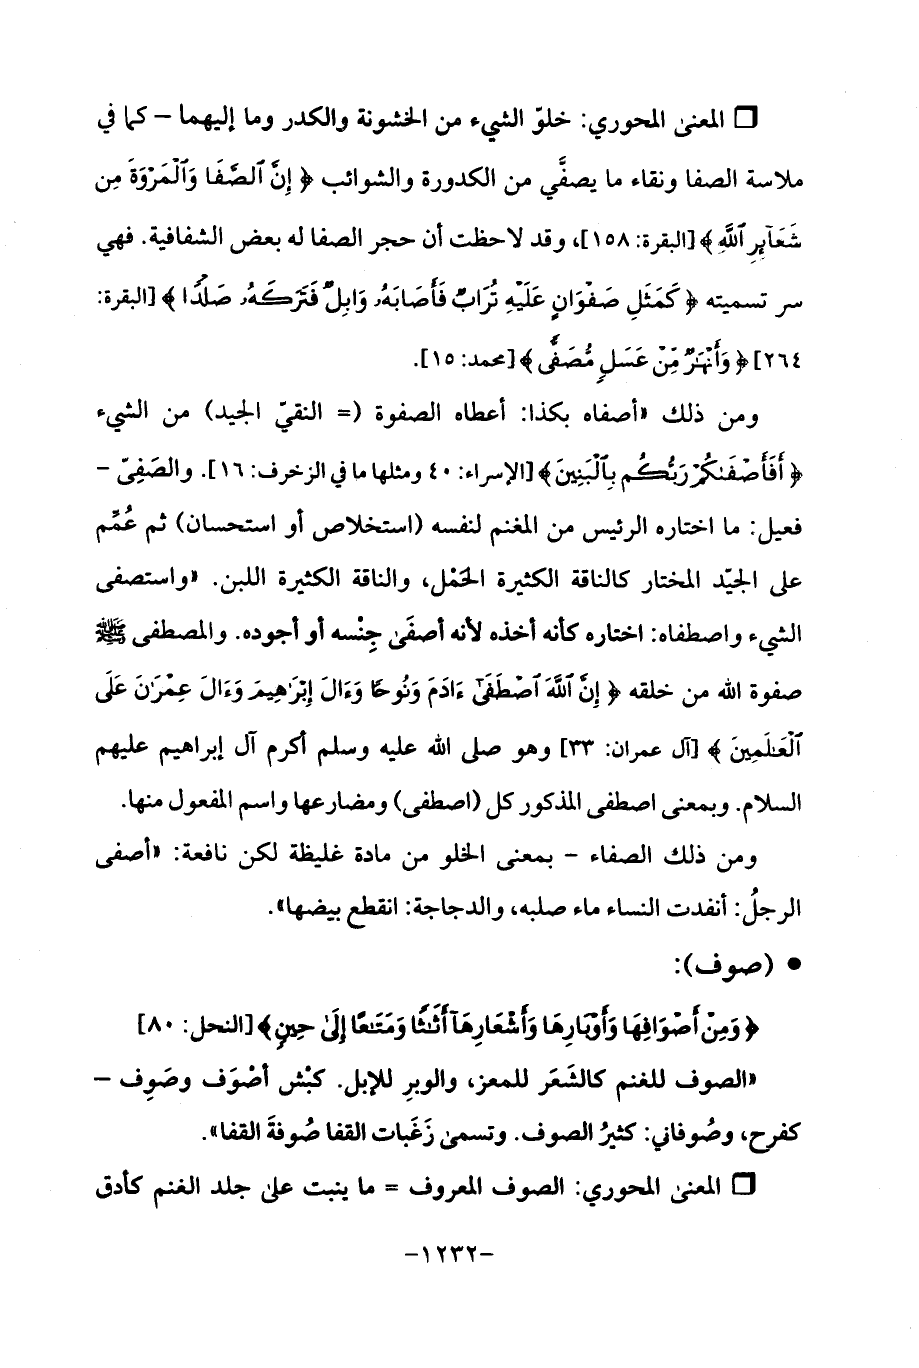 ❒ المعنى المحوري: خلوّ الشيء من الخشونة والكدر وما إليهما – كما في
ملاسة الصفا ونقاء ما يصفَّي من الكدورة والشوائب ﴿ إِنَّ ٱلصَّفَا وَٱلْمَرْوَةَ مِن
شَعَآئِرِ ٱللَّهِ ﴾ [البقرة: ١٥٨]، وقد لاحظت أن حجر الصفا له بعض الشفافية. فهي
سر تسميته ﴿ كَمَثَلِ صَفْوَانٍ عَلَيْهِ تُرَابٌ فَأَصَابَهُۥ وَابِلٌ فَتَرَكَهُۥ صَلْدًا ﴾ [البقرة:
٢٦٤] ﴿ وَأَنْهَٰرٌ مِّنْ عَسَلٍ مُّصَفًّى ﴾ [محمد: ١٥].
ومن ذلك «أصفاه بكذا: أعطاه الصفوة (= النقيّ الجيد) من الشيء
﴿ أَفَأَصْفَىٰكُمْ رَبُّكُم بِٱلْبَنِينَ ﴾ [الإسراء: ٤٠ ومثلها ما في الزخرف: ١٦]. والصَفِىّ –
فعيل: ما اختاره الرئيس من المغنم لنفسه (استخلاص أو استحسان) ثم عُمِّم
على الجيّد المختار كالناقة الكثيرة الحَمْل، والناقة الكثيرة اللبن. «واستصفى
الشيء واصطفاه: اختاره كأنه أخذه لأنه أصفَى جِنْسه أو أجوده. والمصطفى ﷺ
صفوة الله من خلقه ﴿ إِنَّ ٱللَّهَ ٱصْطَفَىٰٓ ءَادَمَ وَنُوحًا وَءَالَ إِبْرَٰهِيمَ وَءَالَ عِمْرَٰنَ عَلَى
ٱلْعَٰلَمِينَ ﴾ [آل عمران: ٣٣] وهو صلى الله عليه وسلم أكرم آل إبراهيم عليهم
السلام. وبمعنى اصطفى المذكور كل (اصطفى) ومضارعها واسم المفعول منها.
ومن ذلك الصفاء – بمعنى الخلو من مادة غليظة لكن نافعة: «أصفى
الرجلُ: أنفدت النساء ماء صلبه، والدجاجة: انقطع بيضها».
• (صوف):
﴿ وَمِنْ أَصْوَافِهَا وَأَوْبَارِهَا وَأَشْعَارِهَآ أَثَٰثًا وَمَتَٰعًا إِلَىٰ حِينٍ ﴾ [النحل: ٨٠]
«الصوف للغنم كالشَعَر للمعز، والوبرِ للإبل. كبْش أصْوَف وصَوِف –
كفرح، وصُوفاني: كثيرُ الصوف. وتسمى زَغَبات القفا صُوفةَ القفا».
❒ المعنى المحوري: الصوف المعروف = ما ينبت على جلد الغنم كأدق
–١٢٣٢–